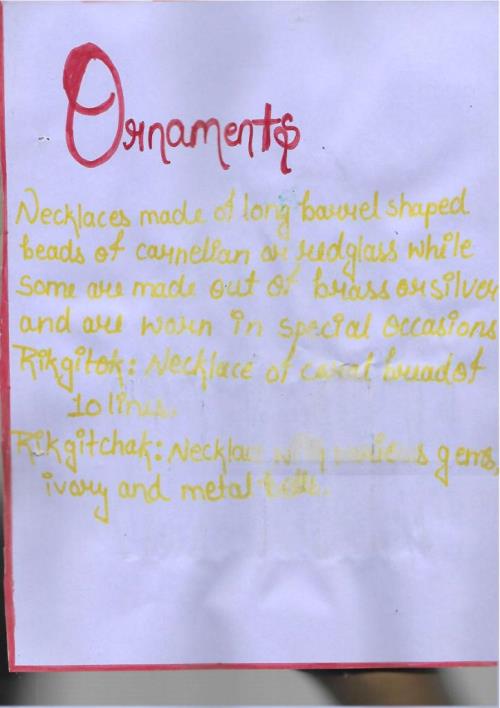 Ornaments
Necklaces made of long barrel shaped
beads of carnelian or redglass while
some are made out of brass or silver
and are worn in special occasions
Rikgitok: Necklace of coral bread of
10 lines.
Rikgitchak: Necklace with various gems,
ivory and metal bells.